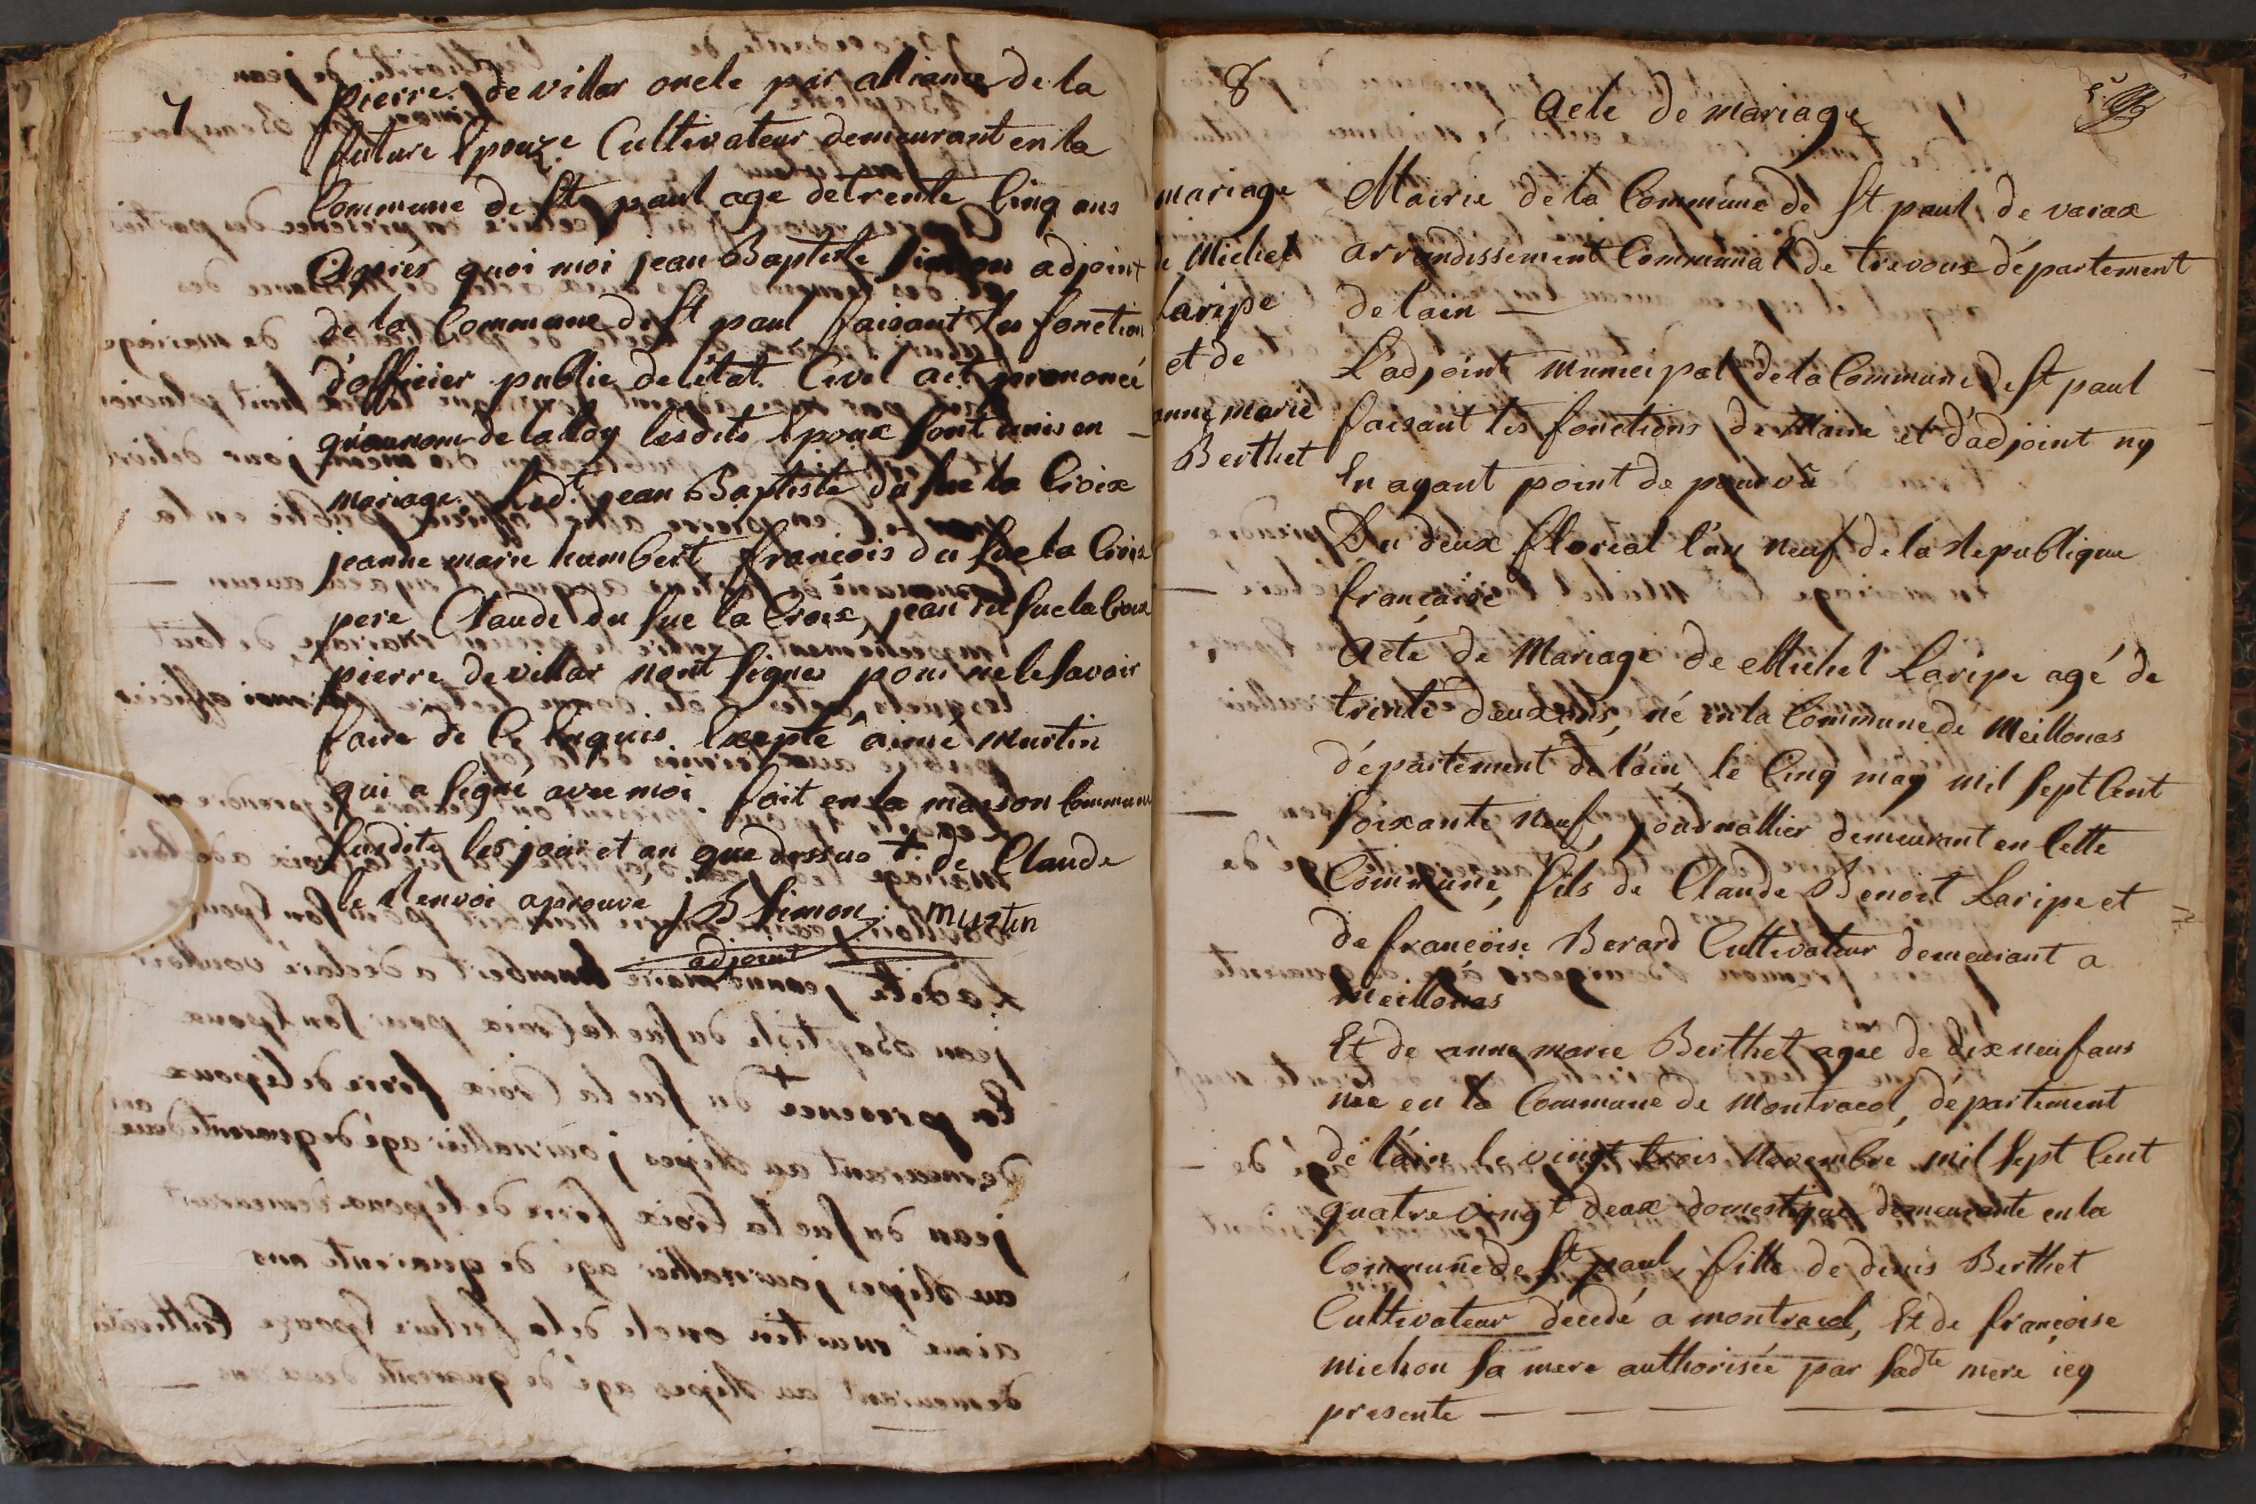 7
pierre de villar oncle par alliance de la
future Epouze Cultivateur demeurant en la
Commune de St paul age de trente Cinq ans
Apres quoi moi jean Baptiste Simon adjoint
de la Commune de St paul faisant les fonction
d'officier public de l'état Civil ait prononcé
qu'au nom de la loy lesdits Epoux sont unis en
mariage. Led.t jean Baptiste du sue la Croix
jeanne marie humbert francois du sue la Croix
pere Claude du sue la Croix, jean du sue la Croix
pierre de villar nont signes pour ne le savoir
faire de Ce Enquis Excepté aimé Martin
qui a signé avec moi fait en la maison Commune
susdite les jour et an que dessus + de Claude
le Renvoi aprouvé J B Simon martin
adjoint
8
Acte de mariage
mariage
de Michel
Laripe
et de
anne marie
Berthet
Mairie de la Commune de St paul de varax
arrondissement Communal de trevoux département
de lain
L'adjoint Municipal de la Commune de St paul
faisant les fonctions de Maire et d'adjoint ny
En ayant point de pourvû
Du deux floreal l'an neuf de la Republique
francaise
Acte de Mariage de Michel Laripe agé de
trente deux ans, né en la Commune de Meillonas
département de l'ain le Cinq may mil sept Cent
soixante neuf, journallier demeurant en Cette
Commune, fils de Claude Benoit Laripe et
de francoise Berard Cultivateur demeurant a
Meillonas
Et de anne marie Berthet agée de dix neuf ans
née en la Commune de Montracol, département
de l'ain le vingt trois Novembre mil sept Cent
quatre vingt deux domestique demeurante en la
Commune de St paul, fille de denis Berthet
Cultivateur décedé a montracol, Et de francoise
michon sa mere authorisée par sadte mere icy
presente